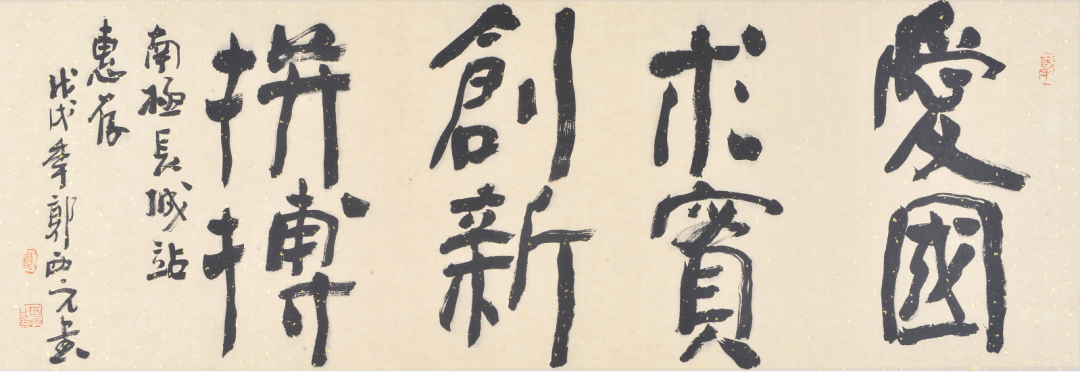 愛國
求實
創新
拼搏
南極長城站
惠存
戊戌年郭西元書